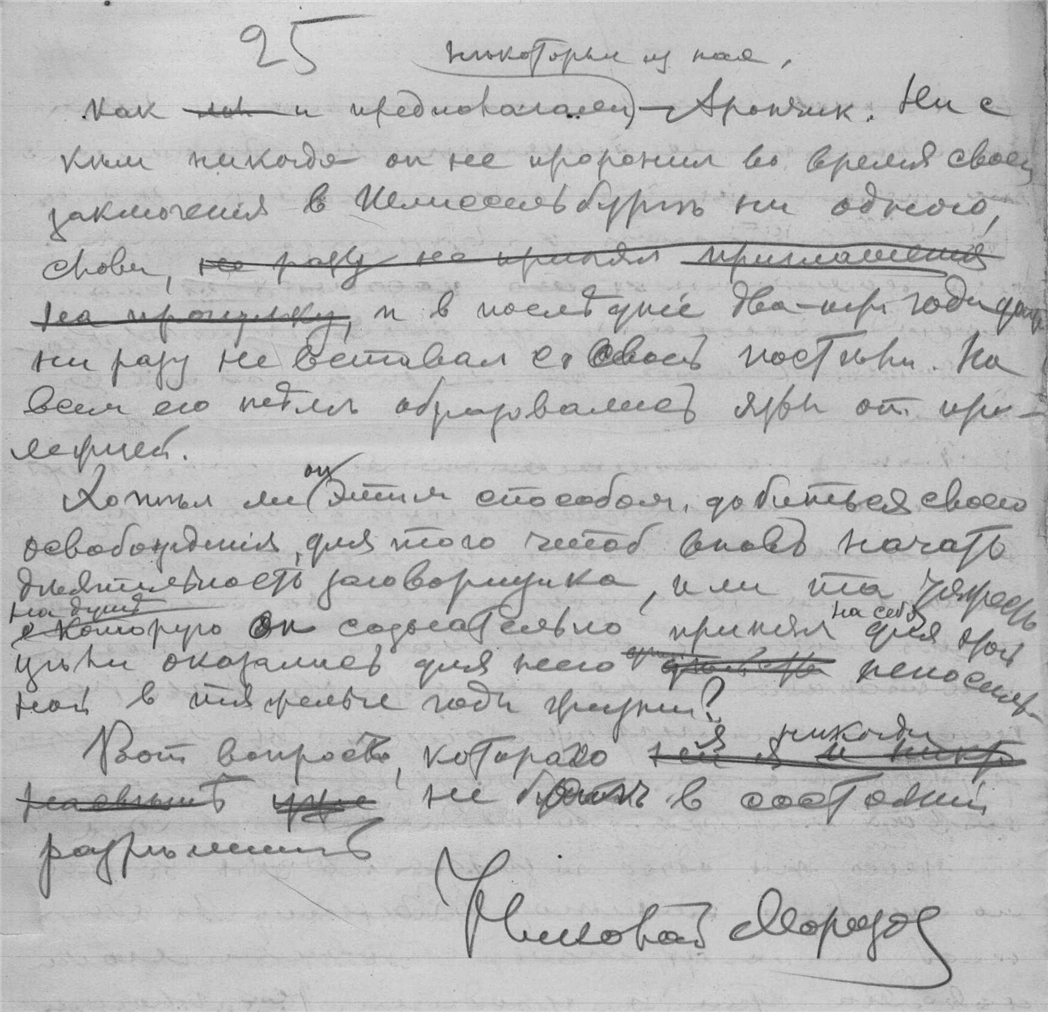 25
некоторые из нас,
как мы и предполагали) — Арончик. Ни с
кем никогда он не проронил во время своего
заключения в Шлиссельбурге ни одного,
слова, ни разу не принял приглашения
на прогулку, и в последние два-три года
ни разу не вставал с своей постели. На
всем его теле образовались язвы от про-
лежней.
Хотел ли он этим способом добиться своего
освобождения, для того чтоб вновь начать
деятельность заговорщика, или та тяжесть
на душе на себя
которую он сознательно принял для этой
цели оказалась для него непосиль-
ной в тяжелые годы
Вот вопрос, которого я никогда
не в состоянии
разрешить
Николай Морозов